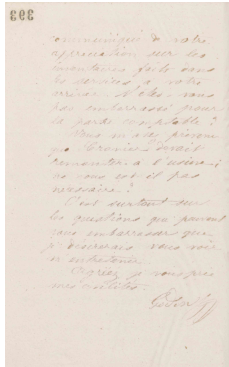 399
communiqué de votre
appréciation sur les
inventaires faits dans
les services à votre
arrivée. N'êtes-vous
pas embarrassé pour
la partie comptable ?
Vous m'avez prévenu
que devait
remonter à l'usine ;
ne vous est-il pas
nécessaire ?
C'est surtout sur
les questions qui peuvent
vous embarrasser que
je désirerais vous voir
m'entretenir.
Agréez je vous prie
mes civilités.
Godin